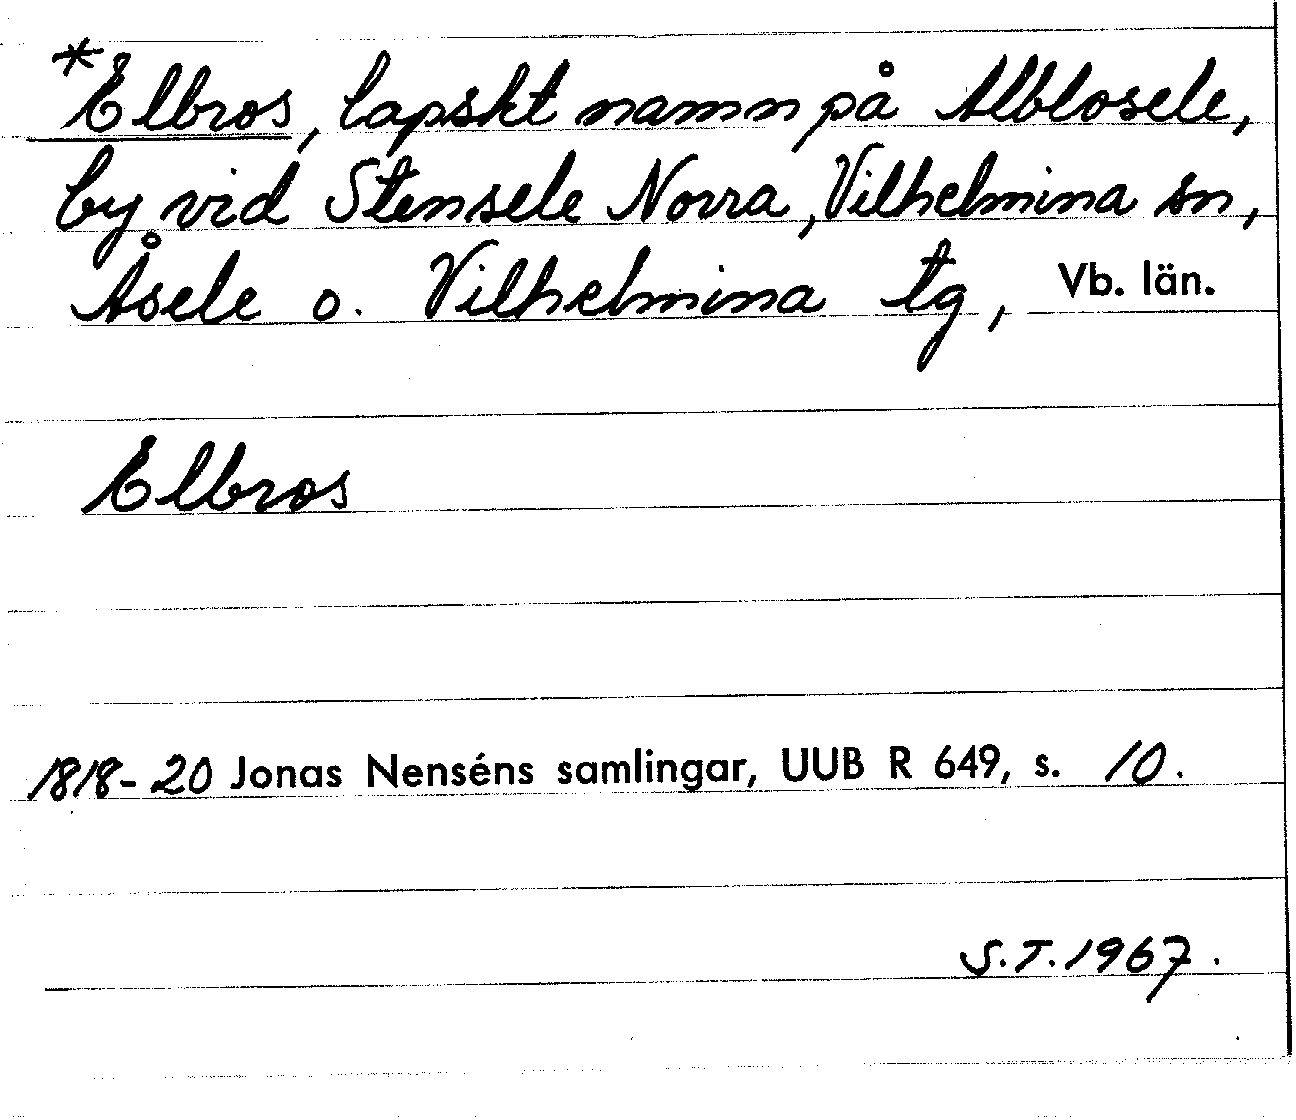 *Elbros, lapskt namn på Alblosele,
by vid Stensele Norra, Vilhelmina sn,
Åsele o. Vilhelmina tg, Vb. län.
Elbros
1818-20 Jonas Nenséns samlingar, UUB R 649, s. 10.
S.T.1967.